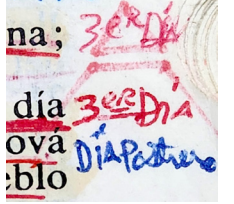 na; 3er Día
día 3ere Día
ová Día Postrero
eblo